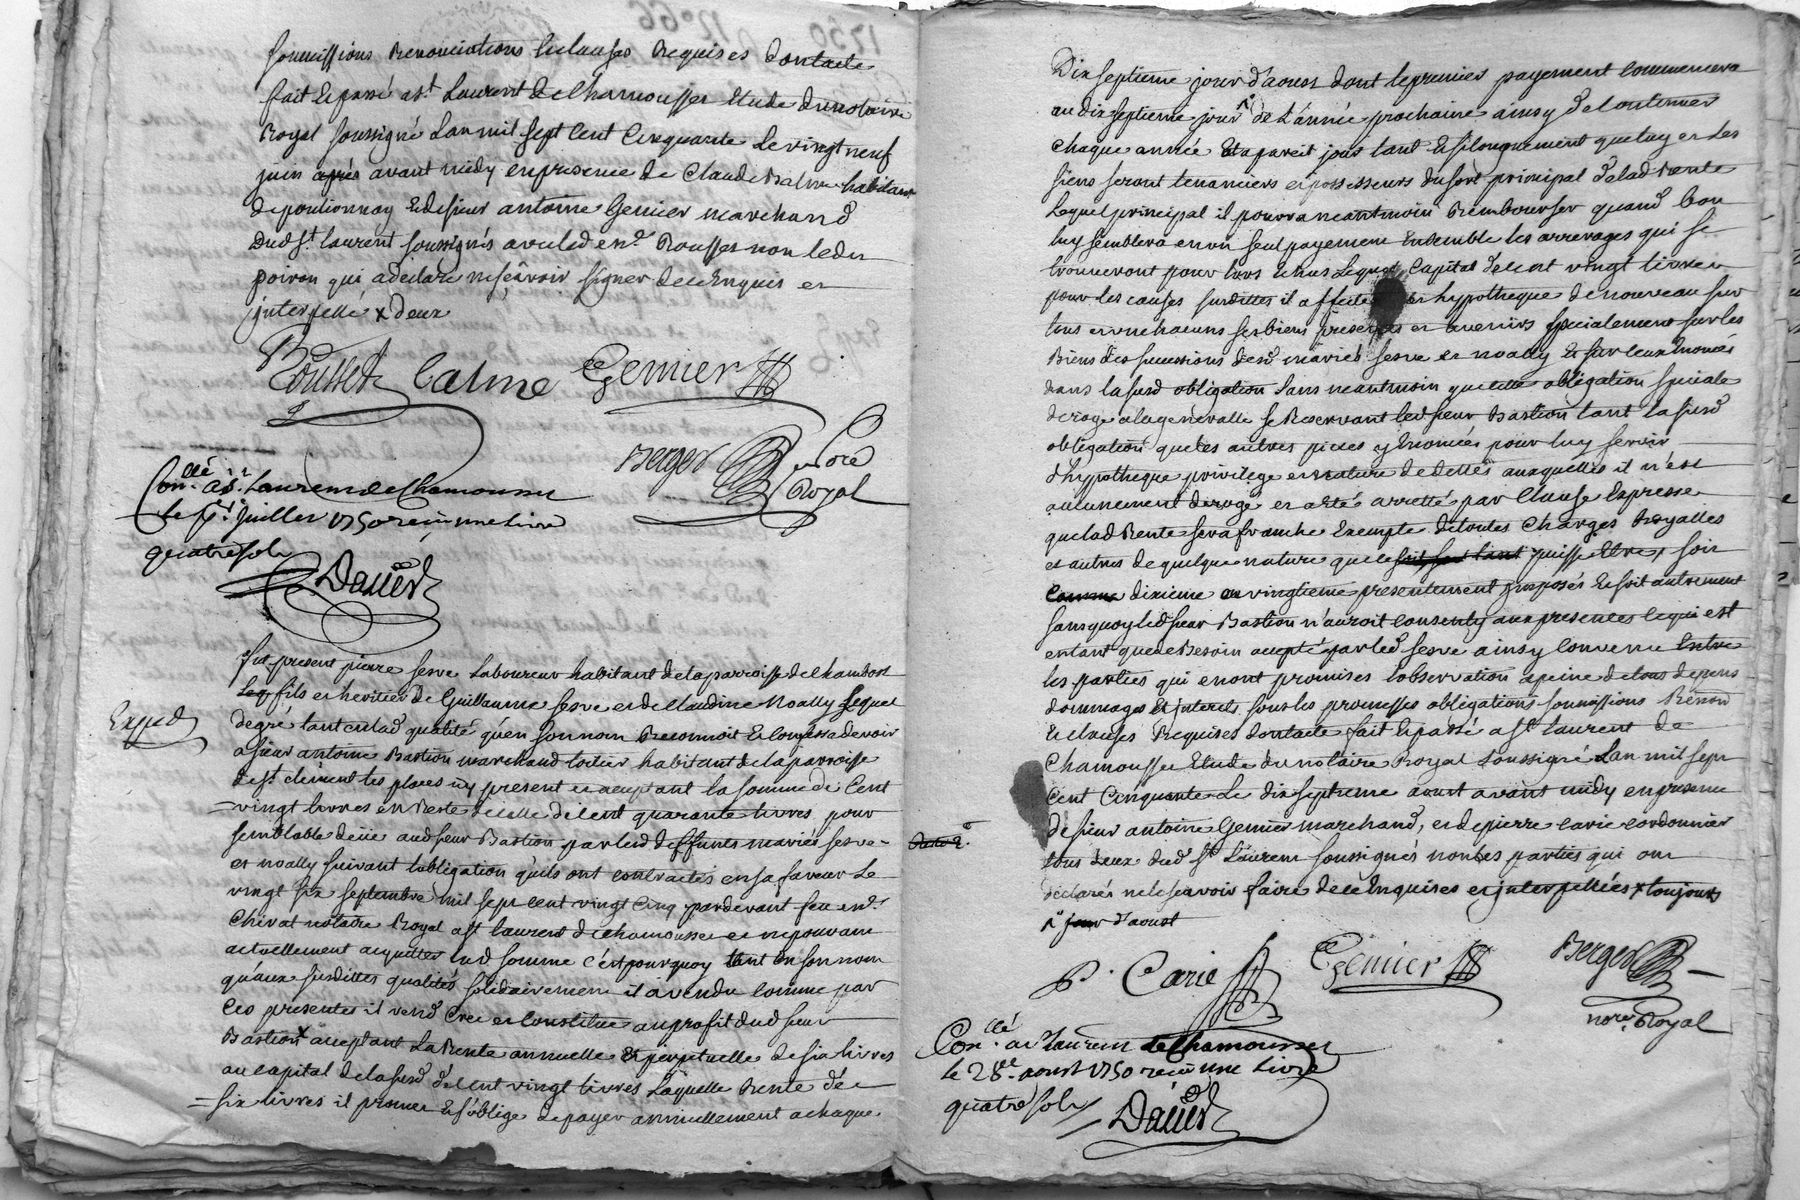 soumissions Renonciations & clauses Requises dont acte
fait & passé a st Laurent de Chamousset Etude du notaire
Royal soussigné L'an mil sept cent Cinquante Le vingt neuf
juin après avant midy en presence de Claude habitant
de & de sieur antoine Genier marchand
dud st laurent soussignés avec led Me Rousset non led
poizon qui a declaré ne sçavoir signer de ce Enquis et
interpellé x deux
Rousset Calme Genier
Berger nore
Royal
Conllé a st Laurent de Chamousset
le juillet 1750 reçu une livre
quatre sols
Daüed
fut present pierre serve Laboureur habitant de la parroisse de chambost
fils et heritier de Guillaume serve et de Claudine Noally Lequel
Exped
de gré tant en lad qualité qu'en son nom Reconnoit & confesse devoir
a sieur antoine Bastion marchand habitant de la parroisse
de st clement les places icy present et aceptant la somme de Cent
vingt livres en Reste de celle de cent quarante livres pour
semblable deüe aud sieur Bastion par lesd deffunts mariés serve
et noally suivant l'obligation qu'ils ont contractés en sa faveur Le
vingt six septembre mil sept cent vingt Cinq pardevant feu me
Chirat notaire Royal a st laurent de chamousset et ne pouvant
actuellement aquitter lad somme c'est pourquoy tant En son nom
qu'aux susdittes qualités solidairement il a vendu comme par
Ces presentes il vend Cree et Constitue au profit dud sieur
Bastion x aceptant La Rente annuelle & perpetuelle de six livres
au capital de la susd de cent vingt livres Laquelle Rente de
six livres il promet & s'oblige de payer annuellement a chaque
Dix septieme jour d'aoust dont le premier payement commencera
au dix septieme jour de L'année prochaine ainsy de Continuer
chaque année Et a pareil jour tant & si longuement que luy et Les
siens seront tenanciers et possesseurs du sort principal de lad Rente
Lequel principal il pourra neantmoin Rembourser quand bon
luy semblera en un seul payement Ensemble les arrerages qui se
trouveront pour lors Echus Lequel Capital de cent vingt livres
pour les causes susdittes il affecte et hypotheque de nouveau sur
tous et un chacuns ses biens presents et avenirs specialement sur les
Biens des successions desd mariés serve et noally & sur ceux Enoncés
dans la susd obligation sans neantmoin que cette obligation speciale
deroge a la generalle se Reservant led sieur Bastion tant la susd
obligation que les autres pieces y Enoncées pour luy servir
d'hypotheque privilege et nature de dettes auxquelles il n'est
aucunement derogé et a été arretté par Clause Expresse
que lad Rente sera franche Exempte de toutes Charges Royalles
et autres de quelque nature que ce puisse Etre, soit
Comme dixieme ou vingtieme presentement imposés & soit autrement
sans quoy led sieur Bastion n'auroit consenty aux presentes le qui est
en tant que de Besoin acepté par led serve ainsy convenu Entre
les parties qui en ont promises l'observation a peine de tous depens
dommages & Interets sous les promesses obligations soumissions Renon
& clauses Requises dont acte fait & passé a st laurent de
Chamousset Etude du notaire Royal soussigné L'an mil sept
Cent Cinquante Le dix septieme aoust avant midy en presence
de sieur antoine Genier marchand, et de pierre carie cordonnier
tous deux dud st Laurent soussignés non les parties qui ont
déclarés ne le sçavoir faire de ce Enquises et interpellées x toujours
jour d'aoust
P. Carie Genier Berger
nore Royal
Conllé a st laurent de Chamousset
le 28e aoust 1750 reçu une livre
quatre sols
Daüed